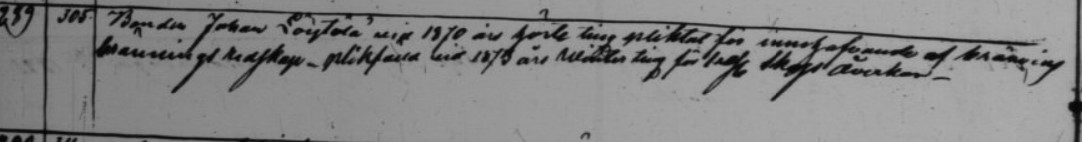 289) 305. Bonden Johan Löytölä vid 1870 års höste ting pliktat för innehafvande af bränning
brännings redskap – plikfäld vid 1873 års Winter ting för skogs åverkan –